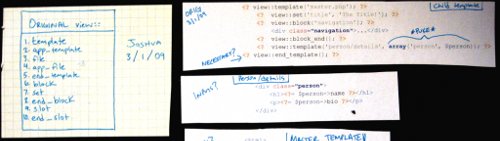 ORIGINAL view::
1. template
2. app_template
3. file
4. app_file
5. end_template
6. block
7. set
8. end_block
9. slot
10. end_slot
Joshua
3/1/09
ORIG
3/1/09
Child template
<? view::template('master.php'); ?>
<? view::set('title', 'The Title!'); ?>
<? view::block('navigation'); ?>
<div class="navigation">...</div>
<? view::end_block(); ?>
<? view::template('person/details', array('person', $person)); ?>
NECESSARY?
<? view::end_template(); ?>
Person/details
<div class="person">
<h1><?= $person->name ?></h1>
<p><?= $person->bio ?></p>
</div>
MASTER TEMPLATE